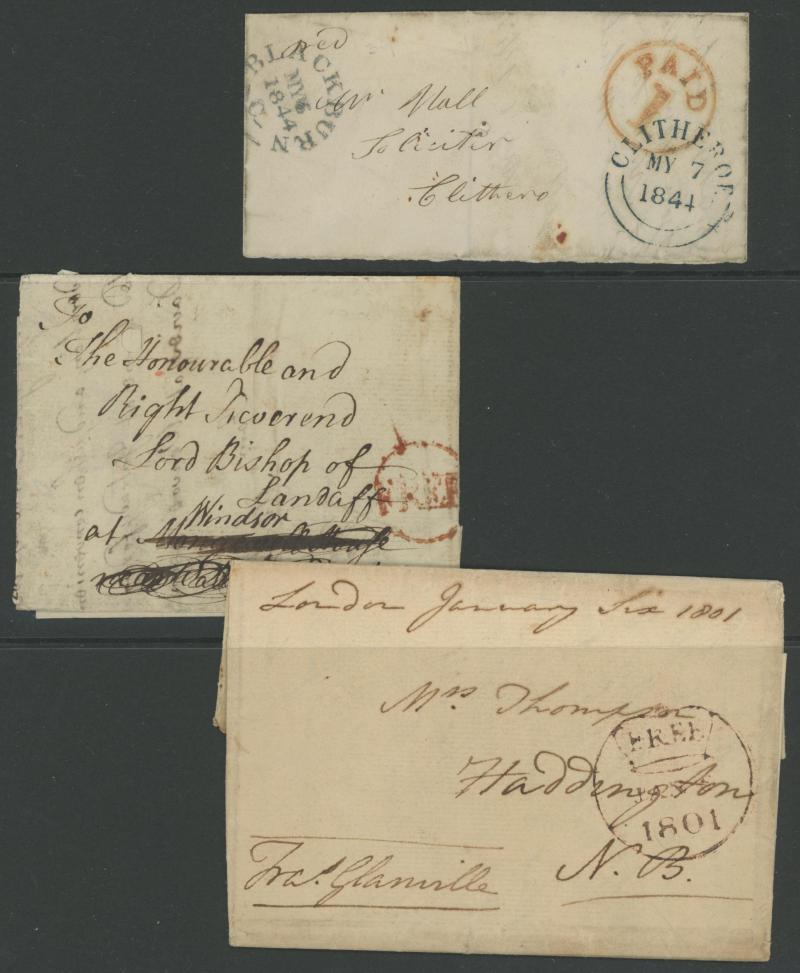 BLACKBURN
MY 6
1844
PAID
1
Mr Hall
Soliciter
Clithero
CLITHEROE
MY 7
1844
To
The Honourable and
Right Reverend
Lord Bishop of
Landaff
at Windsor
FREE
London January Six 1801
Mrs Thompson
Haddington
N.B.
FREE
1801
Fras. Glanville